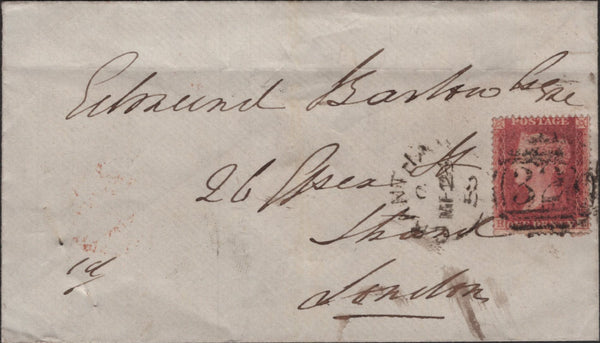 Edmund Barlow Esqre
26 Essex St
Strand
London
1d
POSTAGE
32